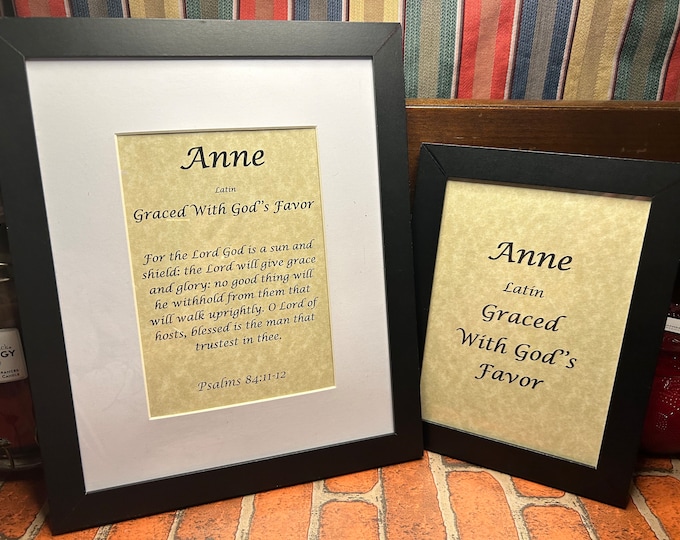 Anne
Latin
Graced With God"s Favor
For the Lord God is a sun and
shield: the Lord will give grace
and glory: no good thing will
he withhold from them that
will walk uprightly. O Lord of
hosts, blessed is the man that
trustest in thee.
Psalms 84:11-12
Anne
Latin
Graced
With God"s
Favor